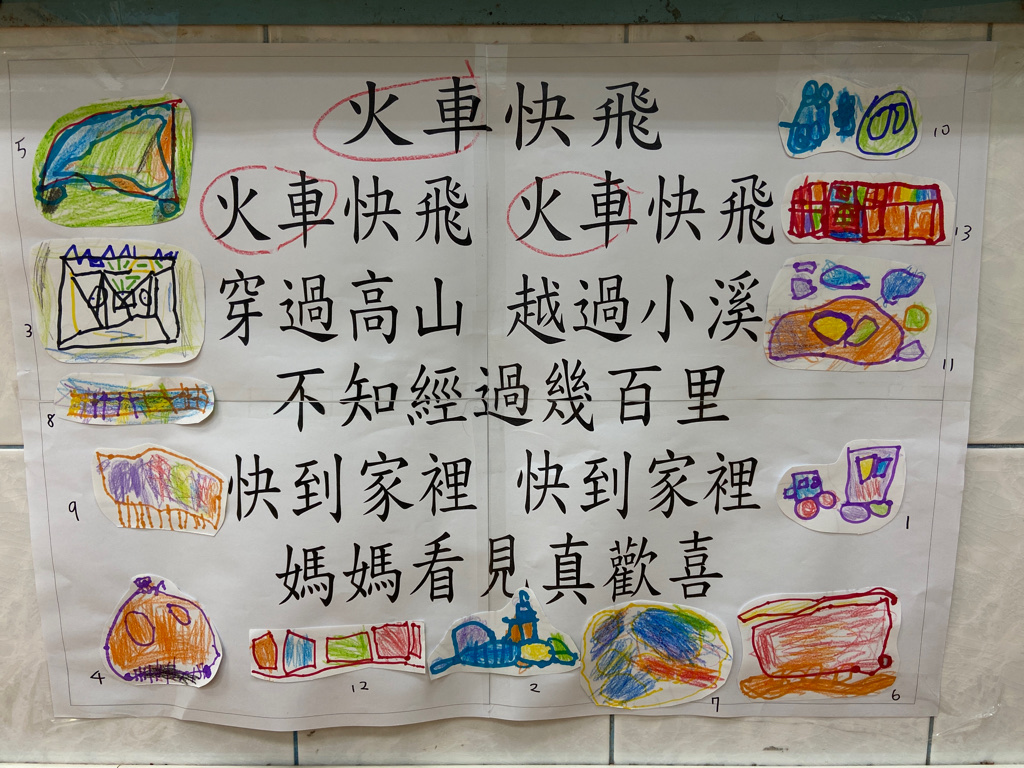 火車快飛
火車快飛 火車快飛
穿過高山 越過小溪
不知經過幾百里
快到家裡 快到家裡
媽媽看見真歡喜
5
3
8
9
4
12
2
7
6
1
11
13
10